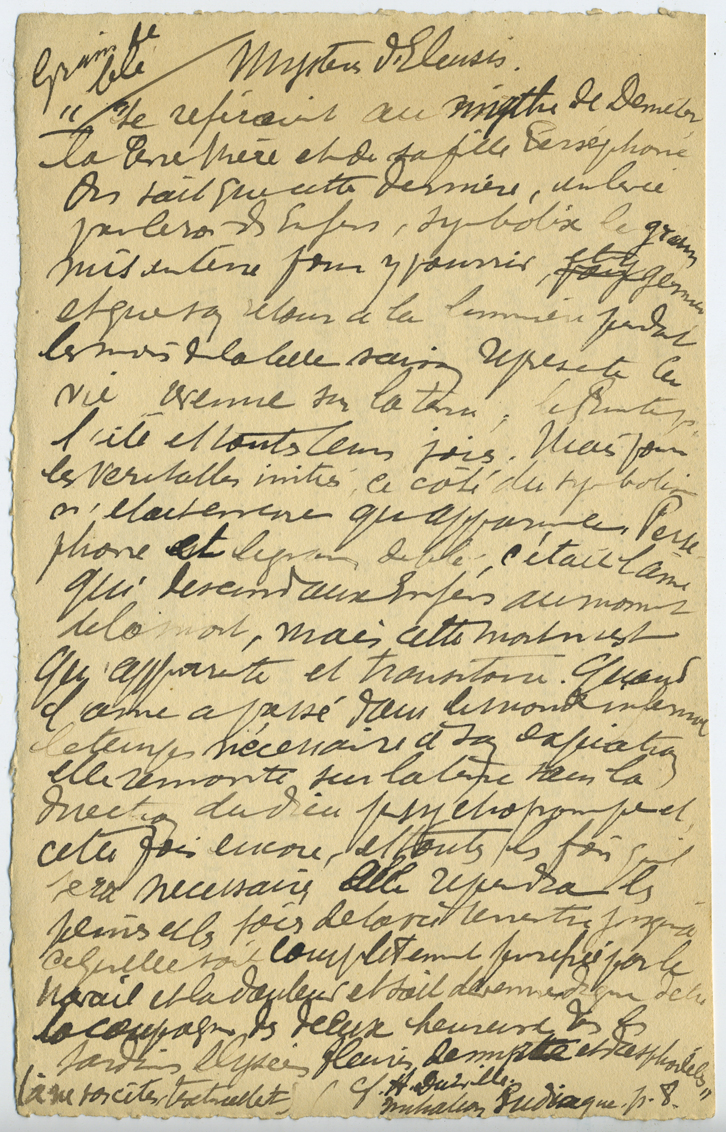 Grain de
blé
Mystères d'Eleusis.
" se referaient au mythe de Demeter
la Terre Mère et de sa fille Perséphone
On sait que cette dernière, enlevée
par le roi des Enfers, symbolise le grain
mis en terre pour y pourrir, et y germer
et que son retour à la lumière pendant
les mois de la belle saison représente la
vie revenue sur la terre, le Printemps
l'été et toutes leurs joies. Mais pour
les veritables initiés, ce côté du symbolisme
n'était encore qu'apparence. Persé
phone et le grain de blé, c'était l'âme
qui descend aux Enfers au moment
de la mort, mais cette mort n'est
qu'apparente et transitoire. Quand
l'ame a passé dans le monde infernal
le temps nécessaire à son expiation
elle remonte sur la terre sous la
direction du dieu psychopompe et,
cette fois encore, et toutes les fois qu'il
sera necessaire elle reprendra les
peines et les joies de la vie terrestre jusqu'à
ce qu'elle soit complètement purifiée par le
travail et la douleur et soit devenue digne d'être
la compagne des dieux heureux dans les
jardins élyséens fleuris de myrte et d'asphodèles"
(à ne pas citer textuellet) (cf. H. Durville
initiation p. 8.